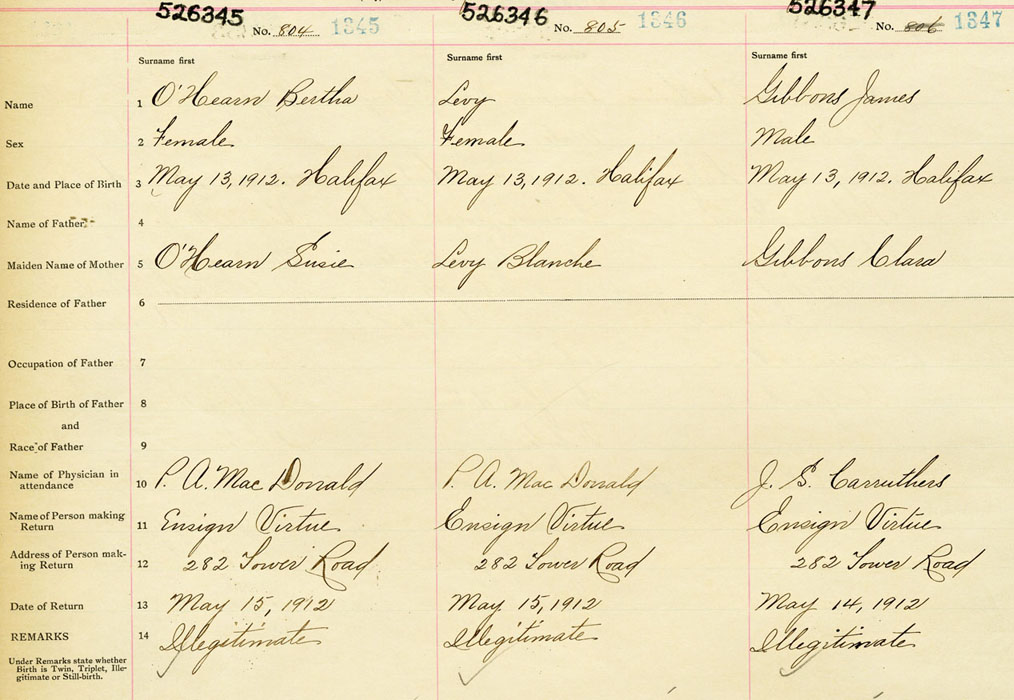 526345 526346 526347
No. 804 1345 No. 805 1346 No. 806 1347
Surname first Surname first Surname first
Name 1 O'Hearn Bertha Levy Gibbons James
Sex 2 Female Female Male
Date and Place of Birth 3 May 13, 1912. Halifax May 13, 1912. Halifax May 13, 1912. Halifax
Name of Father 4
Maiden Name of Mother 5 O'Hearn Susie Levy Blanche Gibbons Clara
Residence of Father 6
Occupation of Father 7
Place of Birth of Father 8
and
Race of Father 9
Name of Physician in
attendance 10 P. A. Mac Donald P. A. Mac Donald J. S. Carruthers
Name of Person making
Return 11 Ensign Virtue Ensign Virtue Ensign Virtue
Address of Person mak-
ing Return 12 282 Tower Road 282 Tower Road 282 Tower Road
Date of Return 13 May 15, 1912 May 15, 1912 May 14, 1912
REMARKS 14 Illegitimate Illegitimate Illegitimate
Under Remarks state whether
Birth is Twin, Triplet, Ille-
gitimate or Still-birth.